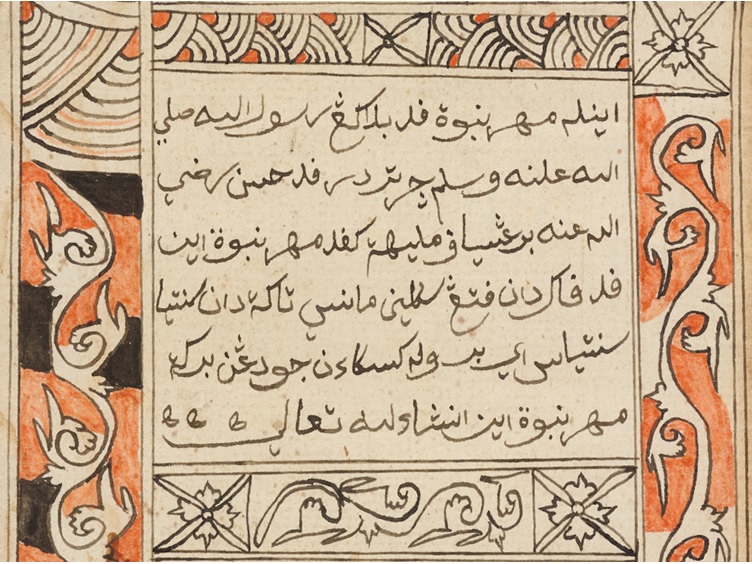 اينله مهر نبوة فد بلاكڠ رسول الله صلي
الله عليه وسلم چرتر در فد حسن رضي
الله عنه برڠسياف مليهة كفد مهر نبوة اين
فد فاك دان فتڠ سكلين مانسي تاكة دان
سنتياس اي بروله كسكاءن جو دڠن بركة
مهر نبوة اين ان شاء الله تعالي